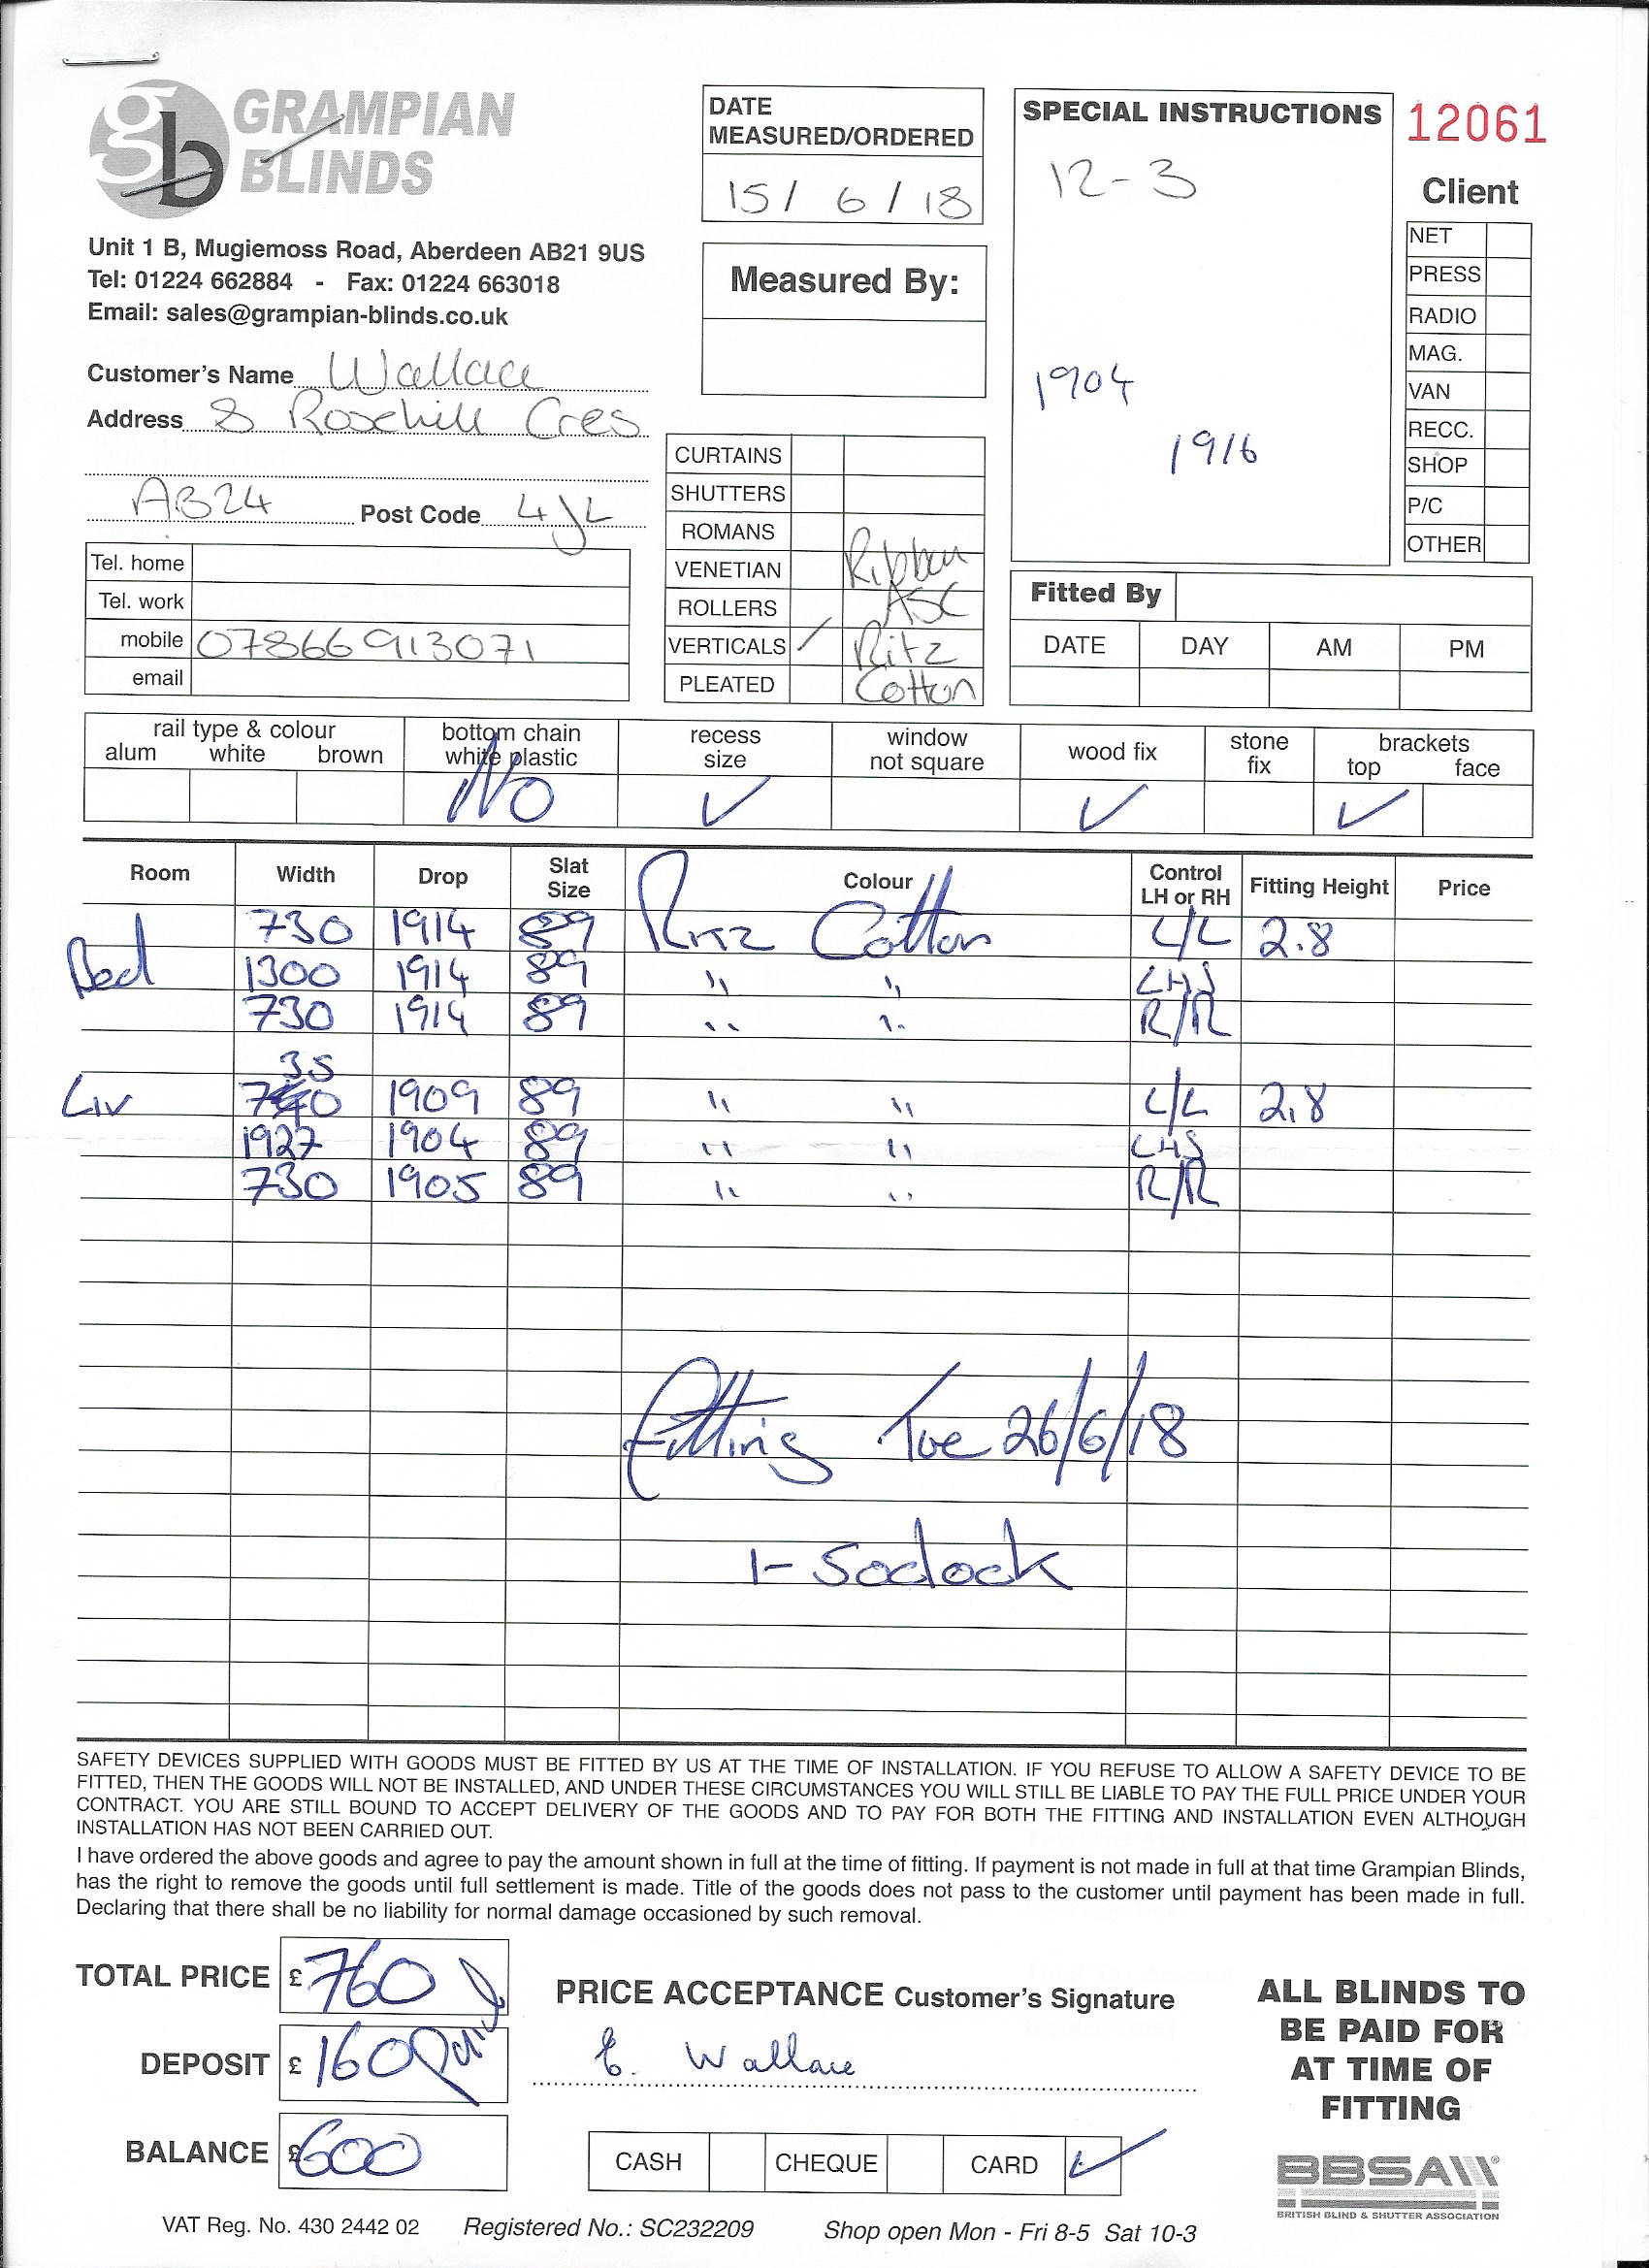 GRAMPIAN
BLINDS
gb
Unit 1 B, Mugiemoss Road, Aberdeen AB21 9US
Tel: 01224 662884 - Fax: 01224 663018
Email: sales@grampian-blinds.co.uk
Customer's Name Wallace
Address 8 Rosehill Cres
AB24 Post Code 4JL
Tel. home
Tel. work
mobile 07866913071
email
DATE
MEASURED/ORDERED
15/ 6 / 18
Measured By:
CURTAINS
SHUTTERS
ROMANS
VENETIAN Ribbon
ROLLERS ASC
VERTICALS / Ritz
PLEATED Cotton
SPECIAL INSTRUCTIONS
12-3
1904
1916
12061
Client
NET
PRESS
RADIO
MAG.
VAN
RECC.
SHOP
P/C
OTHER
Fitted By
DATE DAY AM PM
rail type & colour
alum white brown
bottom chain
white plastic
NO
recess
size
✓
window
not square
wood fix
✓
stone
fix
brackets
top face
✓
Room Width Drop Slat Size Colour Control LH or RH Fitting Height Price
730 1914 89 Ritz Cotton L/L 2.8
Bed 1300 1914 89 " " LHS
730 1914 89 " " R/R
35
Liv 740 1909 89 " " L/L 2.8
1927 1904 89 " " LHS
730 1905 89 " " R/R
Fitting Tue 26/6/18
1- 5oclock
SAFETY DEVICES SUPPLIED WITH GOODS MUST BE FITTED BY US AT THE TIME OF INSTALLATION. IF YOU REFUSE TO ALLOW A SAFETY DEVICE TO BE
FITTED, THEN THE GOODS WILL NOT BE INSTALLED, AND UNDER THESE CIRCUMSTANCES YOU WILL STILL BE LIABLE TO PAY THE FULL PRICE UNDER YOUR
CONTRACT. YOU ARE STILL BOUND TO ACCEPT DELIVERY OF THE GOODS AND TO PAY FOR BOTH THE FITTING AND INSTALLATION EVEN ALTHOUGH
INSTALLATION HAS NOT BEEN CARRIED OUT.
I have ordered the above goods and agree to pay the amount shown in full at the time of fitting. If payment is not made in full at that time Grampian Blinds,
has the right to remove the goods until full settlement is made. Title of the goods does not pass to the customer until payment has been made in full.
Declaring that there shall be no liability for normal damage occasioned by such removal.
TOTAL PRICE £ 760
DEPOSIT £ 160 Paid
BALANCE £ 600
PRICE ACCEPTANCE Customer's Signature
E. Wallace
CASH CHEQUE CARD ✓
ALL BLINDS TO
BE PAID FOR
AT TIME OF
FITTING
BBSA
BRITISH BLIND & SHUTTER ASSOCIATION
VAT Reg. No. 430 2442 02 Registered No.: SC232209 Shop open Mon - Fri 8-5 Sat 10-3